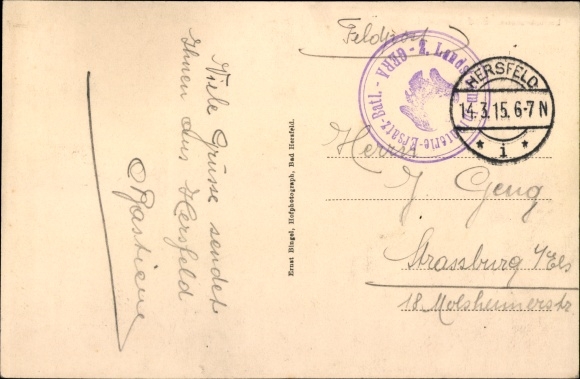 Viele Grüsse sendet
Ihnen aus Hersfeld
Feldpost
GERA - 2. Landsturm Infanterie-Ersatz-Batl. -
HERSFELD
14.3.15. 6-7 N
* 1 *
Herrn
J. Geng
Strassburg i/Els
18 Molsheimerstr
Ernst Bingel, Hofphotograph, Bad Hersfeld.